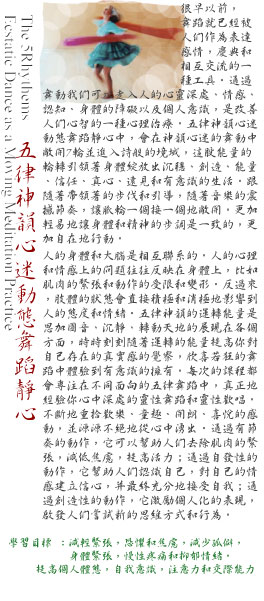 The 5Rhythems
Ecstatic Dance as a Moving Meditation Practice
五律神韻心迷動態舞蹈靜心
很早以前，
舞蹈就已經被
人們作為表達
感情，慶典和
相互交流的一
種工具。通過
舞動我們可以進入人的心靈深處、情感、
認知、身體的障礙以及個人意識，是改善
人們心智的一種心理治療，五律神韻心迷
動態舞蹈靜心中，會在神韻心迷的舞動中
敞開7輪並進入詩般的境域，這股能量的
輪轉引領著身體綻放出沉穩、創造、能量
、信任、真心、遠見和有意識的生活，跟
隨著帶領著的步伐和引導，隨著音樂的震
撼節奏，讓脈輪一個接一個地敞開，更加
輕易地讓身體和精神的步調是一致的，更
加自在地行動。
人的身體和大腦是相互聯系的，人的心理
和情感上的問題往往反映在身體上，比如
肌肉的緊張和動作的受限和變形。反過來
，肢體的狀態會直接積極和消極地影響到
人的態度和情緒。五律神韻的運轉能量是
思如圓音、沉靜、轉動天地的展現在各個
方面，時時刻刻隨著運轉的能量提高你對
自己存在的真實感的覺察，欣喜若狂的舞
蹈中體驗到有意識的擁有，每次的課程都
會專注在不同面向的五律舞蹈中，真正地
經驗你心中深處的靈性奔蹈和靈性歡唱，
不斷地重拾歡樂、童趣、開朗、喜悅的感
動，並源源不絕地從心中湧出。通過有節
奏的動作，它可以幫助人們去除肌肉的緊
張，減低焦慮，提高活力；通過自發性的
動作，它幫助人們認識自己，對自己的情
感建立信心，并最終充分地接受自我；通
過創造性的動作，它激勵個人化的表現，
啟發人們嘗試新的思維方式和行為。
學習目標 ：減輕緊張，恐懼和焦慮，減少孤僻，
身體緊張，慢性疼痛和抑郁情緒，
提高個人體態，自我意識，注意力和交際能力